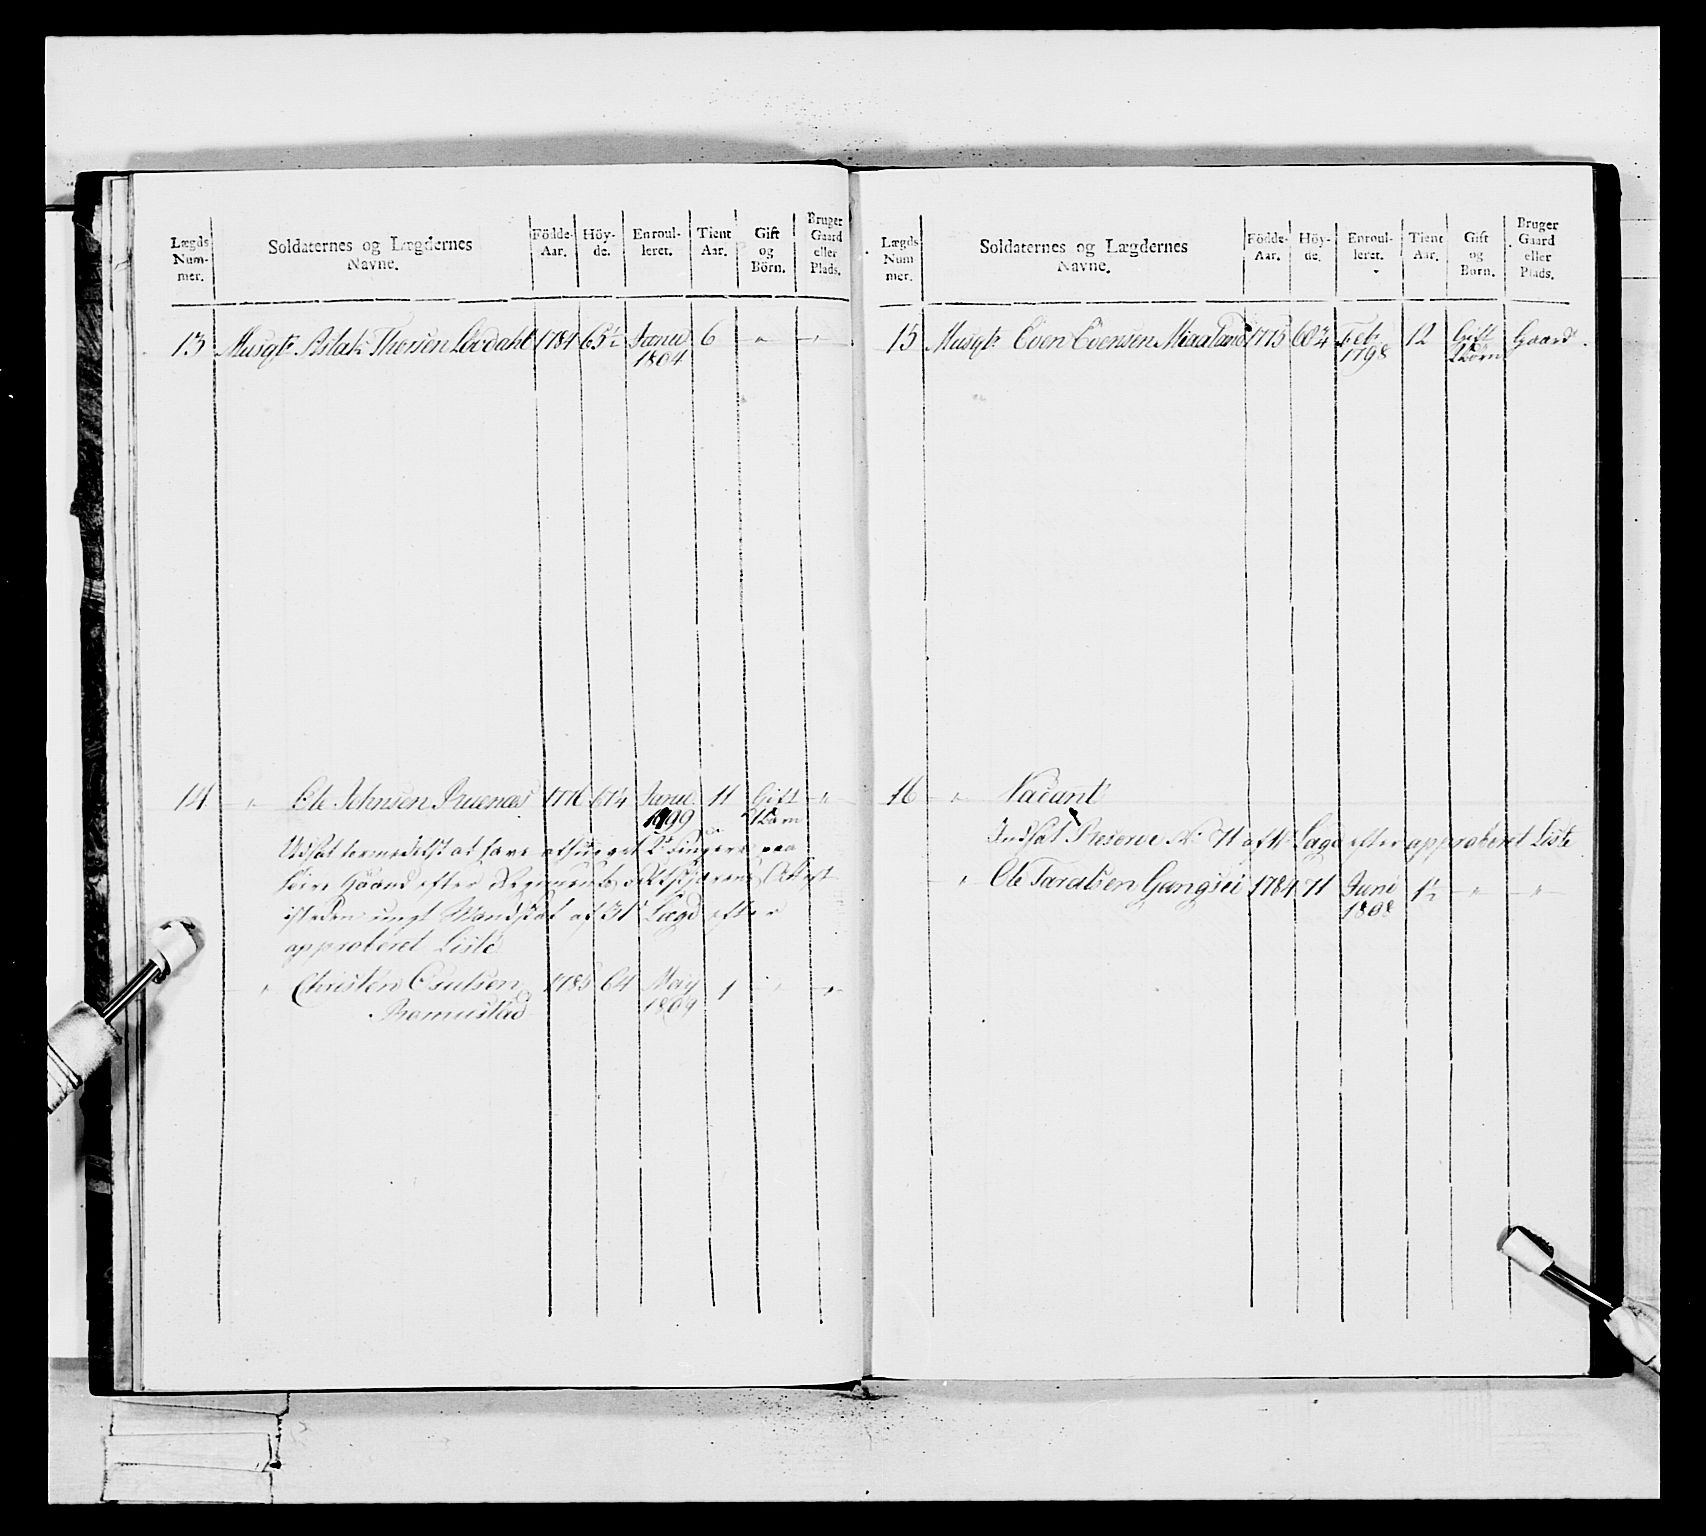 Lægds Num- mer.
Soldaternes og Lægdernes Navne.
Födde- Aar.
Höy- de.
Enroul- leret.
Tient Aar.
Gift og Börn.
Bruger Gaard eller Plads.
13 Musqt: Aslak Thorsen Løvdahl 1784 63½ Janu 6 " "
1804
14 " Ole Johnsen Rusenæs 1776 67¼ Janu 11 Gift "
1799 Barn
Udsat formedelst at have afhugget 2de Fingere paa
høire Haand efter Regiments Attest
isteden ungt Mandskab af 31te Lægd efter
approberet Liste
" Christen Osulsen 1785 64 May 1 " "
Romustad 1809
Lægds Num mer.
Soldaternes og Lægdernes Navne.
Födde- Aar.
Höy- de.
Enroul- leret.
Tient Aar.
Gift og Börn.
Bruger Gaard eller Plads.
15 Musqt: Even Evensen 1775 60¾ Feb: 12 Gift Gaard
1798 Børn
16 " Vacant
Indsat Reserve No 71 af Lægd efter approberet Liste
" Ole Taralsen Gangsei 1784 71 Juni 1½ " "
1808